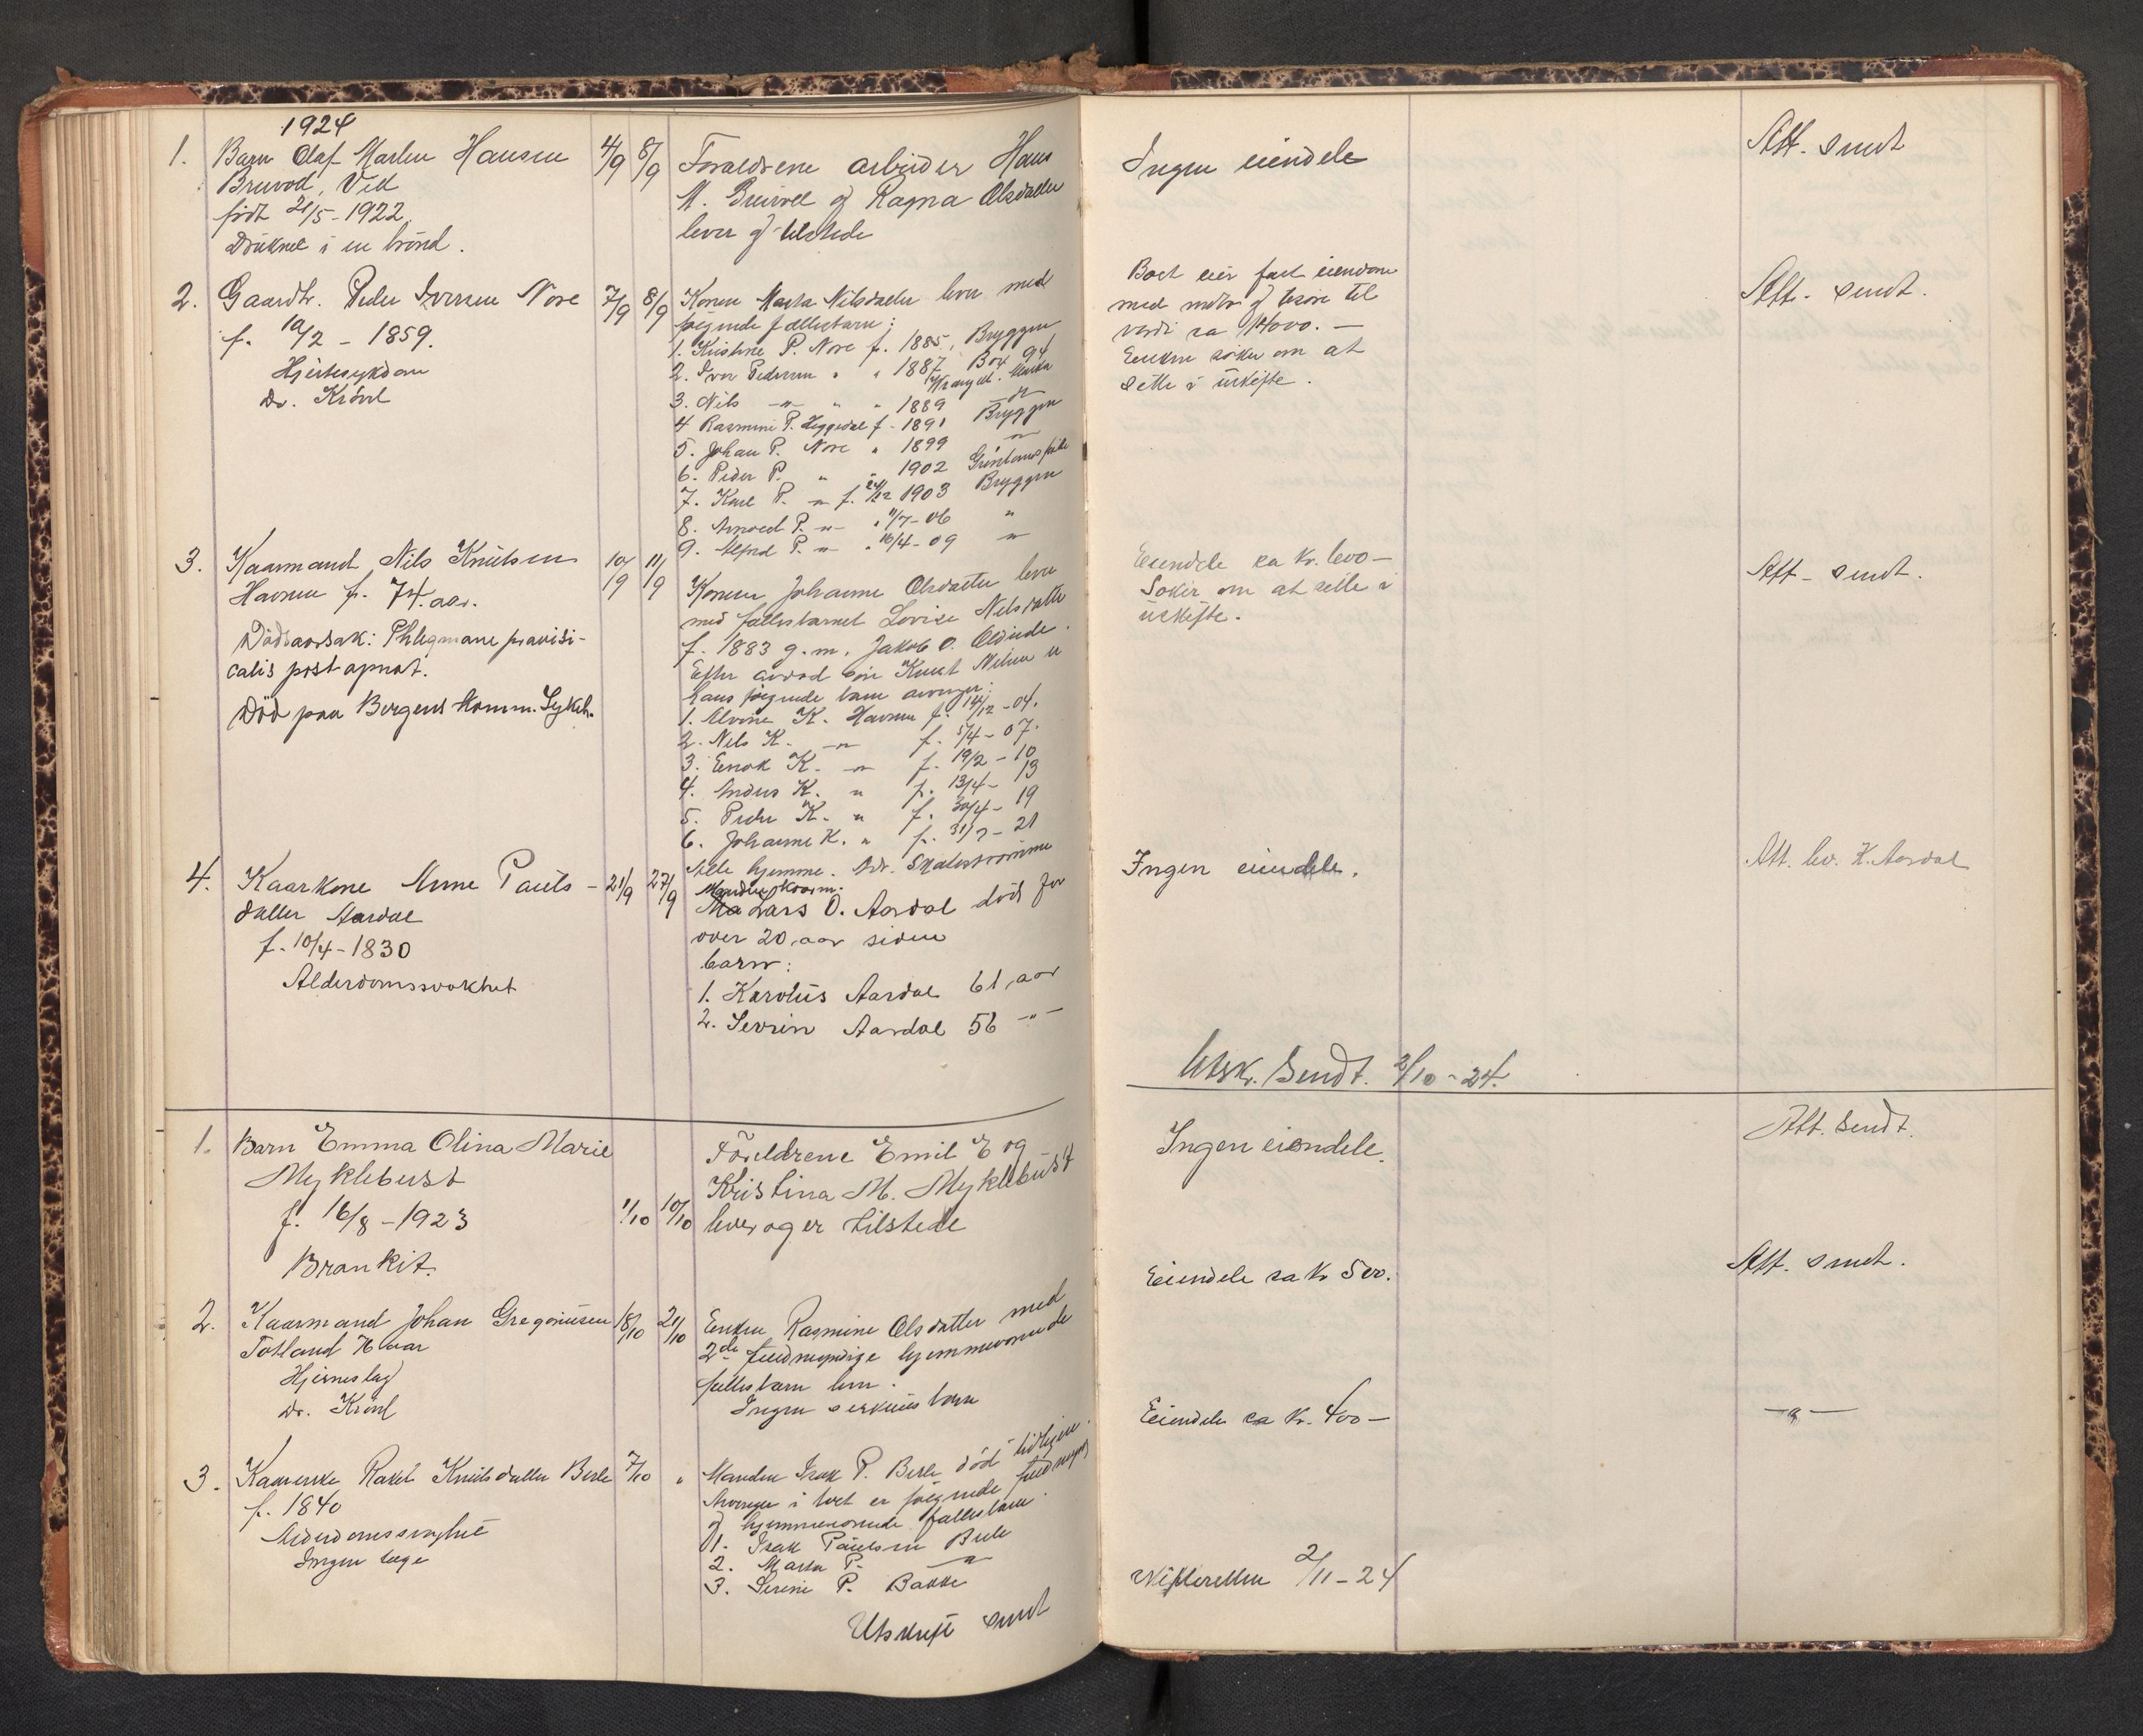 1924
1. Barn Olaf Marlen Hansen 4/9 8/9
Bruvod, Ved
født 21/5-1922
Druknet i en brønd.
Foraldrene arbeider Hans
M. og Ragna Olsdatter
lever og tilstede
Ingen eiendele
Att. sendt
2. Gaardbr. Peder Iversen Nore 7/9 8/9
f. 10/2 - 1859.
Hjertesykdom
Dr.
Konen Marta Nilsdatter lever med
følgende fællesbarn:
1. Kristine P. Nore f. 1885, Bryggen
2. Iver Pedersen " " 1887 Box 94
Wrangel. Alaska
3. Nils -"- " " 1889 -"-
4 Rasmine P. f. 1891 Bryggen
5. Johan P. Nore " 1899 -"-
6. Peder P. " " 1902
7. Karl P. -"- f. 24/12 1903 Bryggen
8. P. -"- " 11/7-06 "
9. Alfred P. -"- " 16/4-09 -"-
Boet eier fast eiendom
med til
verdi ca 14000.-
Enken søker om at
sitte i uskifte.
Att. sendt.
3. Kaarmand Nils Knutsen 10/9 11/9
Havnen f. 74 aar.
Dødsaarsak: Phlegmone
calis post
Død paa Bergens Komm. Sykeh.
Konen Johanne Olsdatter lever
med fællesbarnet Lovise Nilsdatter
f. 1883 g.m. Jakob O.
Efter avdød søn Knut Nilsen er
hans følgende barn arvinger:
1. Alvine K. Havnen f. 14/12-04.
2. Nils K. -"- f. 5/4-07.
3. Enok K. -"- f. 19/2-10
4. Anders K. " f. 13/4-13
5. Peder K. " f. 30/4-19
6. Johanne K. " f. 31/7-21
Alle hjemme. Adr. Skatestrømmen
Eiendele ca kr. 600-
Søker om at sitte i
uskifte.
Att. sendt.
4. Kaarkone Anne Pauls- 21/9 27/9
datter Aardal
f. 10/4-1830
Alderdomssvakhet
Manden kaarm.
Lars O. Aardal død for
over 20 aar siden
barn:
1. Karolus Aardal 61 aar
2. Severin Aardal 56 -"-
Ingen eiendele.
Att. lev. K. Aardal
Utsk. Sendt. 2/10-24.
1. Barn Emma Olina Marie
Myklebust
f. 16/8-1923 1/10 10/10
Bronkit.
Foreldrene Emil E og
Kristina M. Myklebust
lever og er tilstede
Ingen eiendele.
Att. Sendt.
2. Kaarmand Johan Gregoriusen 18/10 21/10
Totland 76 aar
Hjerneslag
Dr.
Enken Rasmine Olsdatter med
2de fuldmyndige hjemmeværende
fællesbarn lever.
Ingen særkuldsbarn
Eiendele ca kr 500.
Att. sendt.
3. Kaarenke Rakel Knutsdatter Berle 7/10 "
f. 1840
Alderdomssvakhet
Ingen læge
Manden Isak P. Berle død tidligere.
Arvinger i boet er følgende fuldmynd.
og hjemmeværende fællesbarn.
1. Isak Paulsen Berle
2. Marta P. -"-
3. Serine P. Bakke
Utskrift sendt
Eiendele ca kr. 400-
-"-
2/11-24